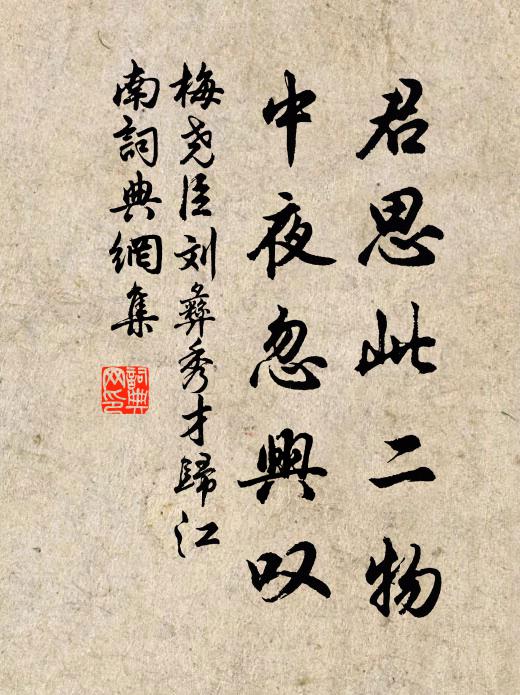 君思此二物
中夜忽興叹
梅尧臣刘彝秀才歸江
南詞典網集
詞典
网印